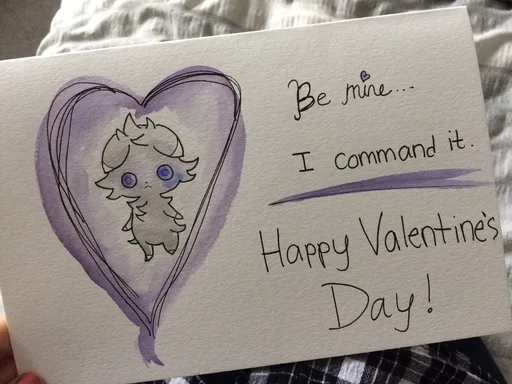 Be mine...
I command it.
Happy Valentine's
Day!